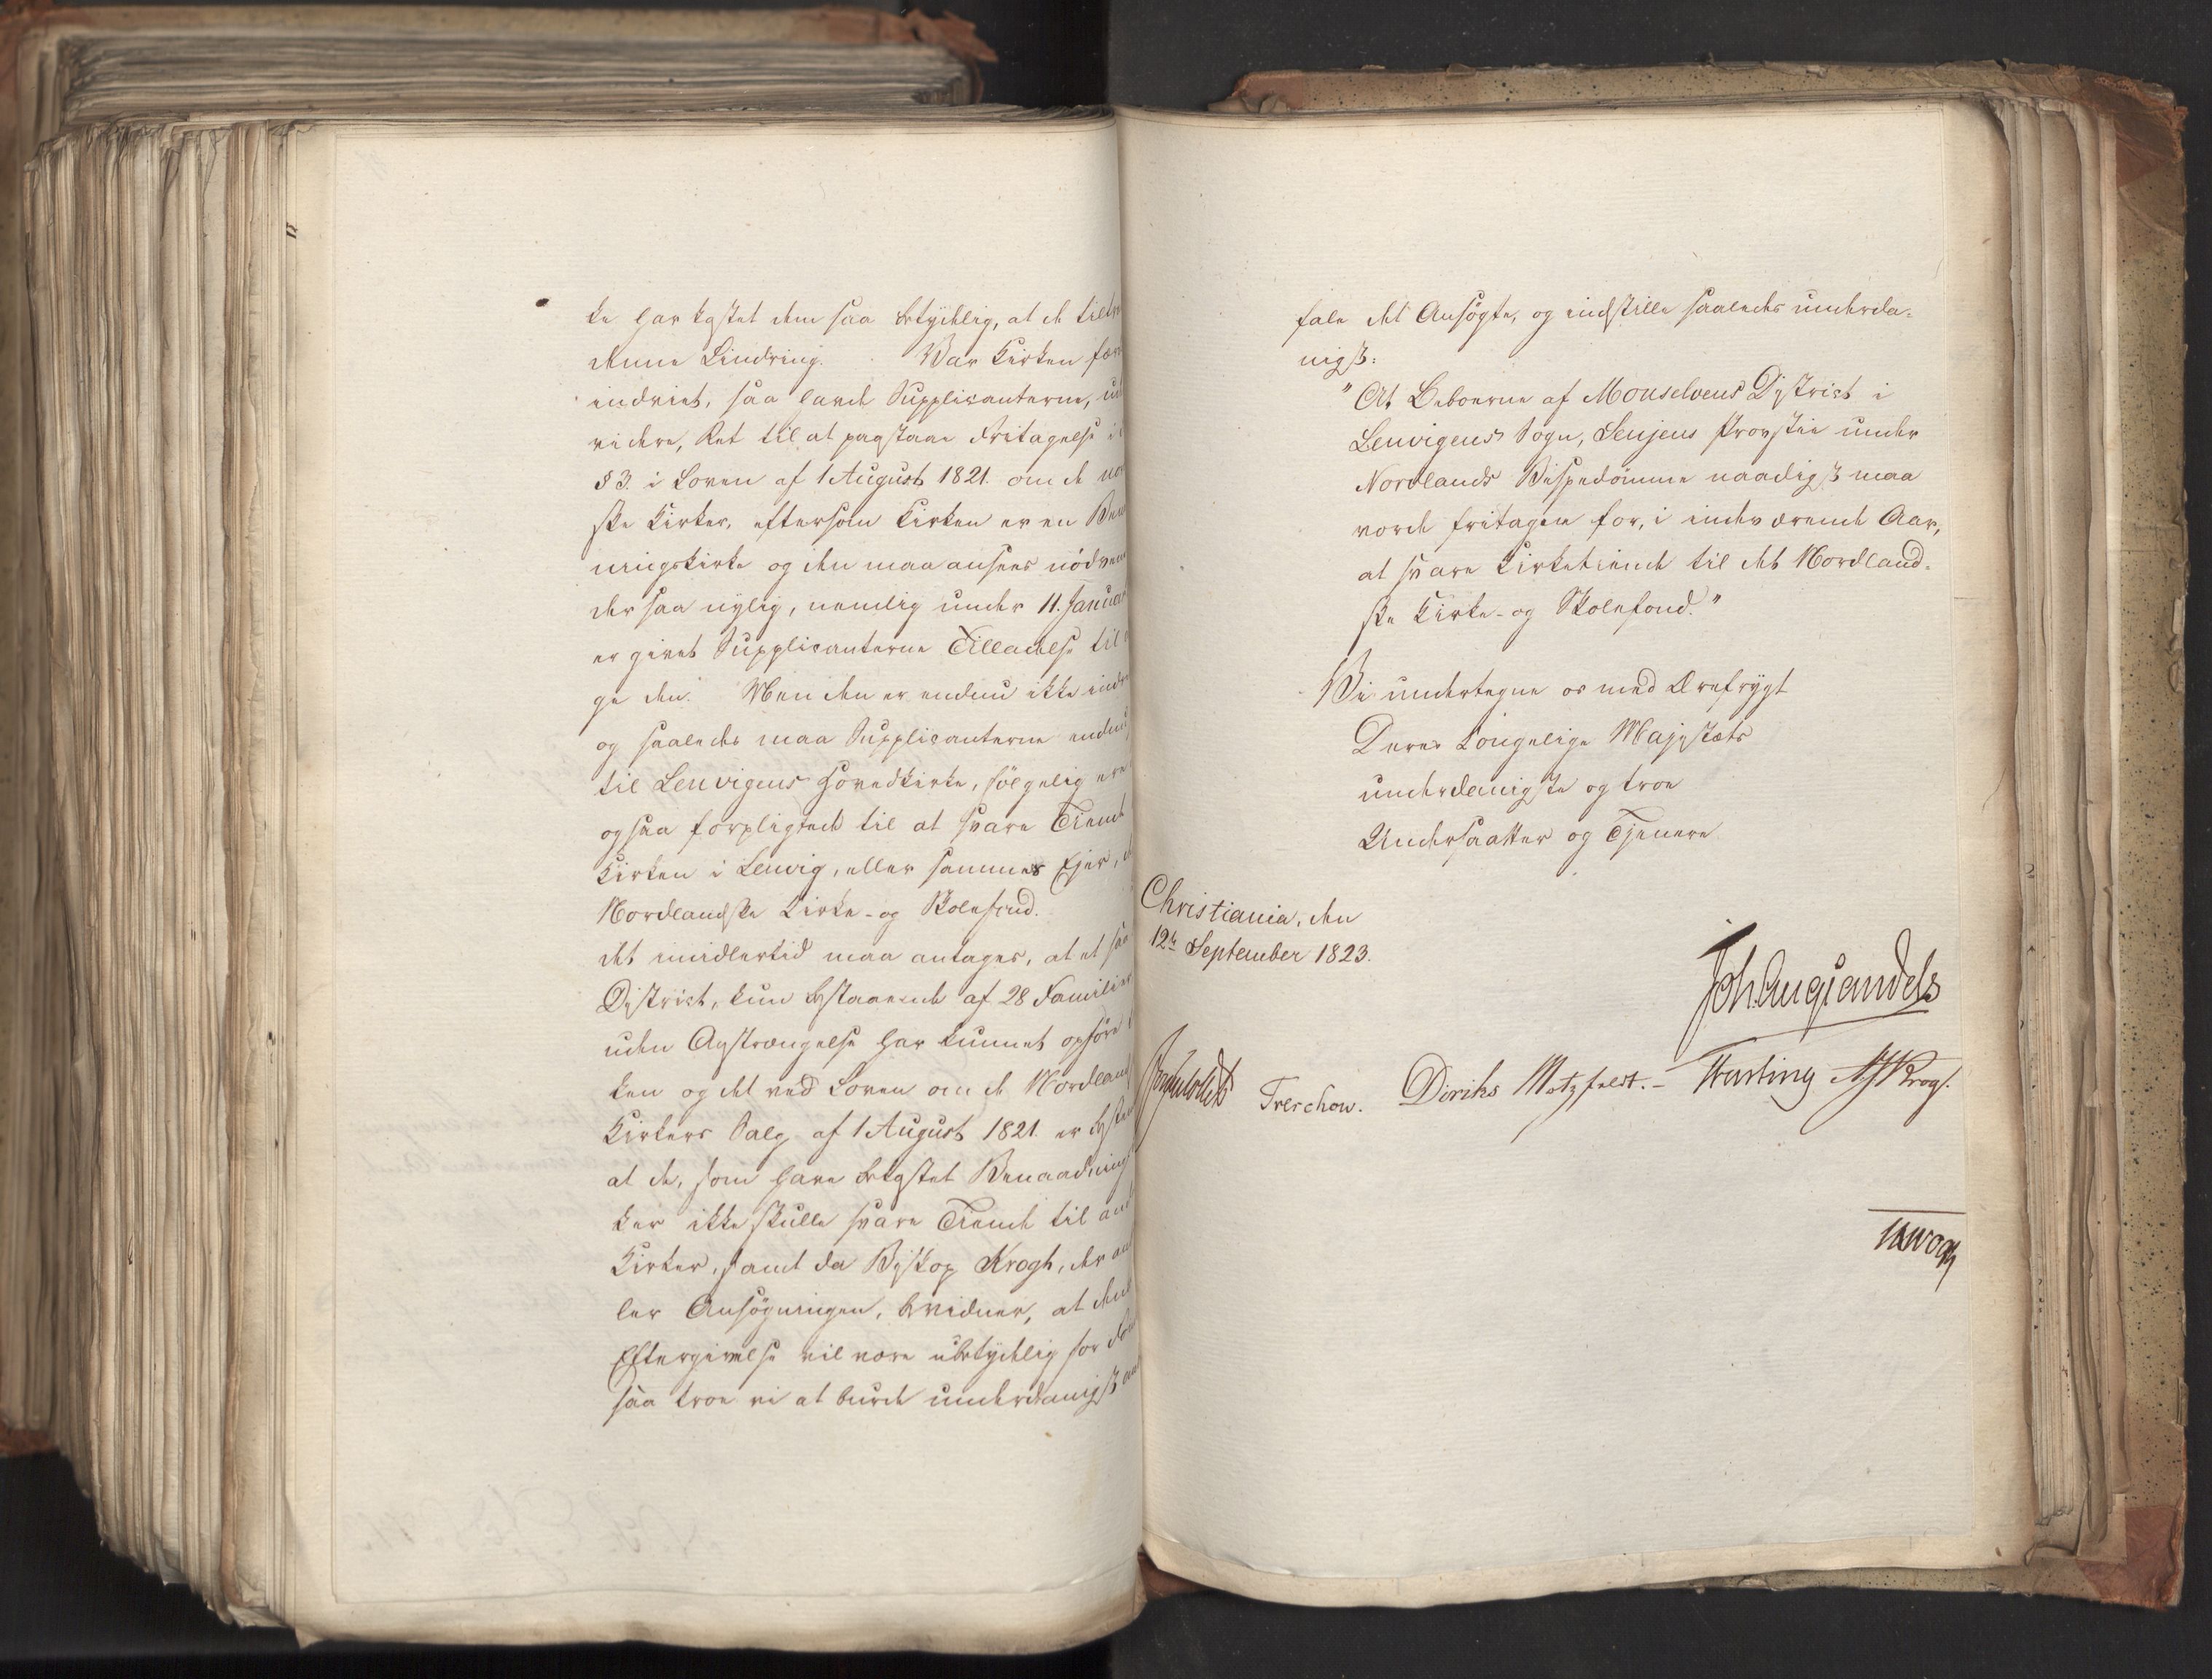 ke har kostet dem saa betydelig, at de tiltr
denne Lindring. Var Kirken fær
indviet, saa havde Supplicanterne, ud
videre, Ret til at paastaae Fritagelse i
§ 3. i Loven af 1 August 1821. om de nor
ske Kirker, eftersom Kirken er en Ben
ningskirke og den maa ansees nødven
der saa nylig, nemlig under 11. Januar
er givet Supplicanterne Tilladelse til
ge den. Men den er endnu ikke indv
og saaledes maa Supplicanterne endnu
til Lenvigens Hovedkirke, følgelig ere
ogsaa forpligtede til at svare Tiende
Kirken i Lenvig, eller sammes Ejer, d
Nordlandske Kirke- og Skolefond.
det imidlertid maa antages, at et saa
District, kun bestaaende af 28 Familier
uden Anstrængelse har kunnet opføre
ken og det ved Loven om de Nordland
Kirkers Salg af 1 August 1821. er bestem
at de, som have bekostet Benaadning
ker ikke skulle svare Tiende til and
Kirker, samt da Biskop Krogh, der an
ler Ansøgningen, bevidner, at denne
Eftergivelse vil være ubetydelig for Fon
saa troe vi at burde underdanigst an
fale det Ansøgte, og indstille saaledes underda-
nigst:
"At Beboerne af Monselvens District i
Lenvigens Sogn, Senjens Provstie under
Nordlands Bispedømme naadigst maa
vorde fritagen for, i indeværende Aar,
at svare Kirketiende til det Nordland-
ske Kirke- og Skolefond."
Vi undertegne os med Ærefrygt
Deres Kongelige Majestæts
underdanigste og troe
Undersaatter og Tjenere
Christiania, den
12te September 1823.
Joh. Aug. Sandels
Treschow. Diriks Motzfeldt. Fasting Krog.